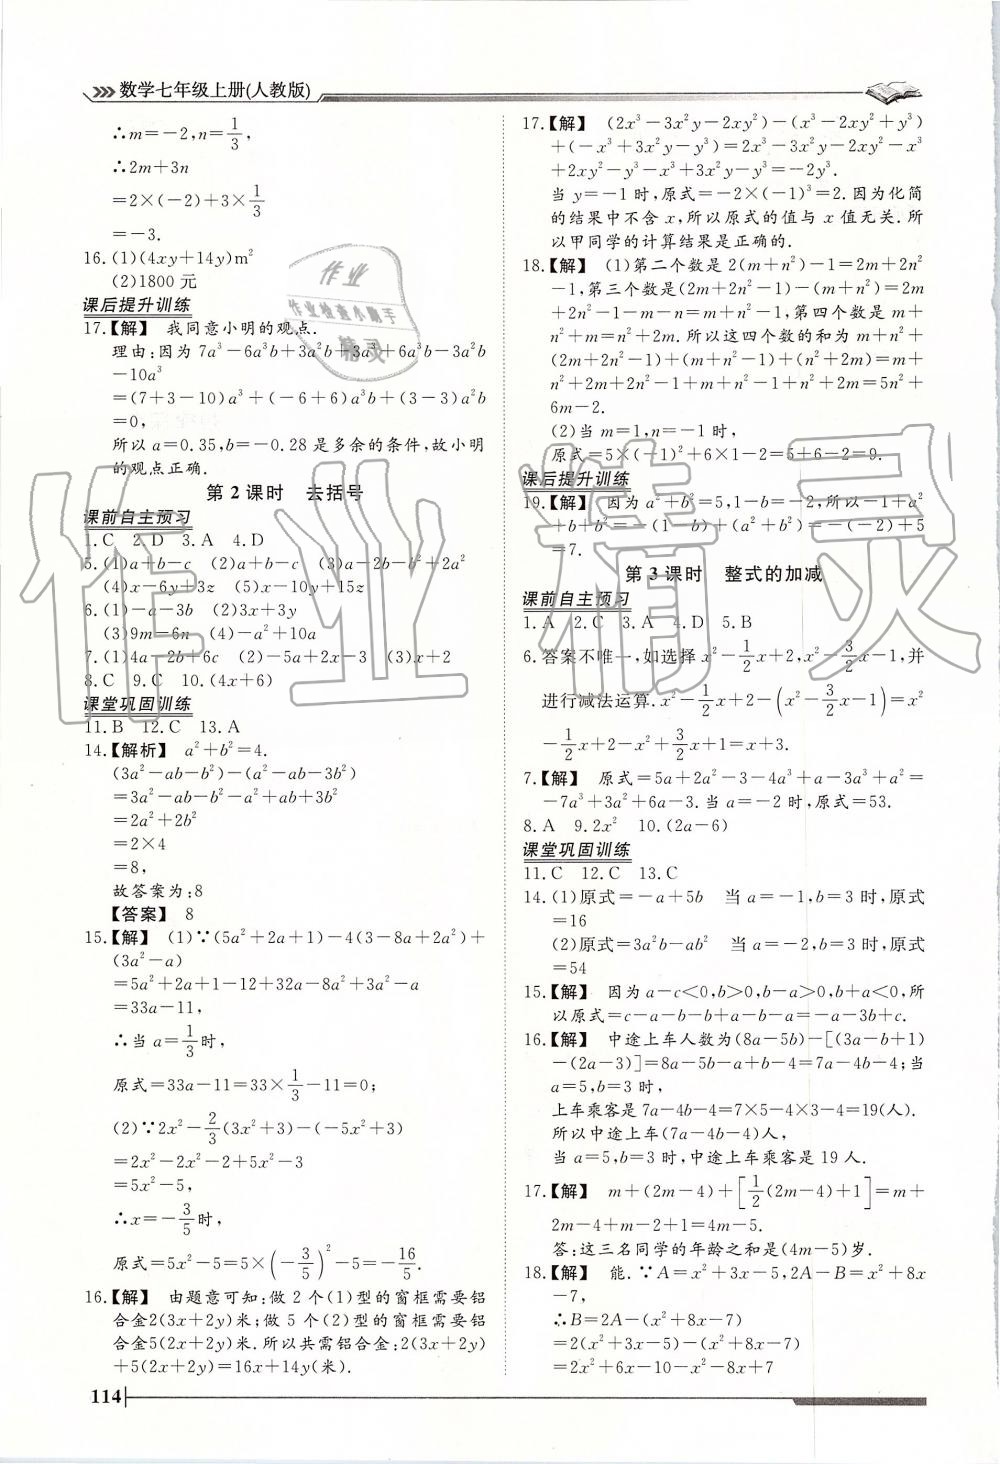 数学七年级上册(人教版)
∴m=-2,n=1/3,
∴2m+3n
=2×(-2)+3×1/3
=-3.
16.(1)(4xy+14y)m²
(2)1800 元
课后提升训练
17.【解】 我同意小明的观点.
理由:因为 7a³-6a³b+3a²b+3a³+6a³b-3a²b
-10a³
=(7+3-10)a³+(-6+6)a³b+(3-3)a²b
=0,
所以 a=0.35,b=-0.28 是多余的条件,故小明
的观点正确.
第 2 课时 去括号
课前自主预习
1.C 2.D 3.A 4.D
5.(1)a+b-c (2)a+b-c (3)a-2b-b²+2a²
(4)x-6y+3z (5)x-5y-2z+1
6.(1)-a-3b (2)3x+3y
(3)9m-6n (4)-a²+10a
7.(1)4a-2b+6c (2)-5a+2x-3 (3)x+2
8.C 9.C 10.(4x+6)
课堂巩固训练
11.B 12.C 13.A
14.【解析】 a²+b²=4.
(3a²-ab-b²)-(a²-ab-3b²)
=3a²-ab-b²-a²+ab+3b²
=2a²+2b²
=2×4
=8,
故答案为:8
【答案】 8
15.【解】 (1)∵(5a²+2a+1)-4(3-8a+2a²)+
(3a²-a)
=5a²+2a+1-12+32a-8a²+3a²-a
=33a-11,
∴当 a=1/3时,
原式=33a-11=33×1/3-11=0;
(2)∵2x²-2/3(3x²+3)-(-5x²+3)
=2x²-2x²-2+5x²-3
=5x²-5,
∴x=-3/5时,
原式=5x²-5=5×(-3/5)²-5=-16/5.
16.【解】 由题意可知:做 2 个(1)型的窗框需要铝
合金2(3x+2y)米;做 5 个(2)型的窗框需要铝
合金5(2x+2y)米.所以共需铝合金:2(3x+2y)
+5(2x+2y)=16x+14y(米).
114
17.【解】 (2x³-3x²y-2xy²)-(x³-2xy²+y³)
+(-x³+3x²y-y³)=2x³-3x²y-2xy²-x³
+2xy²-y³-x³+3x²y-y³=-2y³.
当 y=-1 时,原式=-2×(-1)³=2.因为化简
的结果中不含 x,所以原式的值与 x 值无关.所
以甲同学的计算结果是正确的.
18.【解】 (1)第二个数是 2(m+n²)-1=2m+2n²
-1,第三个数是(2m+2n²-1)-(m+n²)=2m
+2n²-1-m-n=m+n²-1,第四个数是 m+
n²+m=n²+2m.所以这四个数的和为 m+n²+
(2m+2n²-1)+(m+n²-1)+(n²+2m)=m+
n²+2m+2n²-1+m+n²-1+n²+2m=5n²+
6m-2.
(2)当 m=1,n=-1 时,
原式=5×(-1)²+6×1-2=5+6-2=9.
课后提升训练
19.【解】 因为 a²+b²=5,1-b=-2,所以-1+a²
+b+b²=-(1-b)+(a²+b²)=-(-2)+5
=7.
第 3 课时 整式的加减
课前自主预习
1.A 2.C 3.A 4.D 5.B
6.答案不唯一,如选择 x²-1/2x+2,x²-3/2x-1,并
进行减法运算.x²-1/2x+2-(x²-3/2x-1)=x²
-1/2x+2-x²+3/2x+1=x+3.
7.【解】 原式=5a+2a²-3-4a³+a-3a³+a²=
-7a³+3a²+6a-3.当 a=-2 时,原式=53.
8.A 9.2x² 10.(2a-6)
课堂巩固训练
11.C 12.C 13.C
14.(1)原式=-a+5b 当 a=-1,b=3 时,原式
=16
(2)原式=3a²b-ab² 当 a=-2,b=3 时,原式
=54
15.【解】 因为 a-c<0,b>0,b-a>0,b+a<0,所
以原式=c-a-b-b+a-b-a=-a-3b+c.
16.【解】 中途上车人数为(8a-5b)-[(3a-b+1)
-(2a-3)]=8a-5b-a+b-4=7a-4b-4;当
a=5,b=3 时,
上车乘客是 7a-4b-4=7×5-4×3-4=19(人).
所以中途上车(7a-4b-4)人,
当 a=5,b=3 时,中途上车乘客是 19 人.
17.【解】 m+(2m-4)+[1/2(2m-4)+1]=m+
2m-4+m-2+1=4m-5.
答:这三名同学的年龄之和是(4m-5)岁.
18.【解】 能.∵A=x²+3x-5,2A-B=x²+8x
-7,
∴B=2A-(x²+8x-7)
=2(x²+3x-5)-(x²+8x-7)
=2x²+6x-10-x²-8x+7
作业
作业检查小助手
精灵
作业精灵